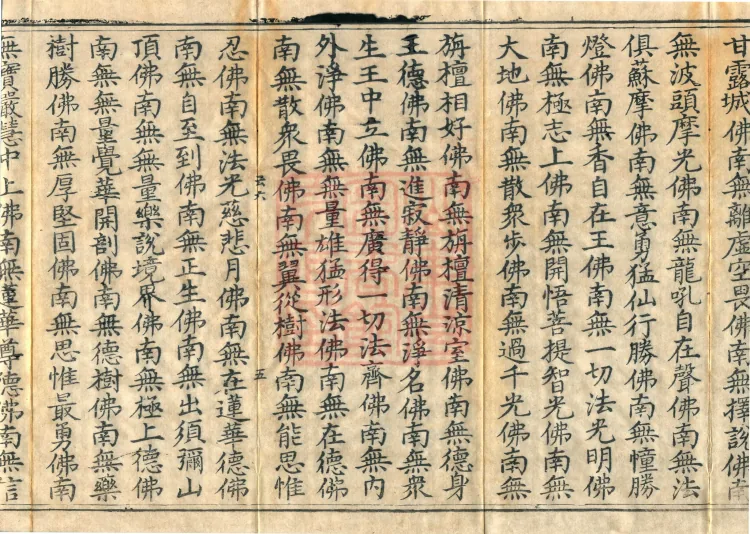 甘露城佛南無離虛空畏佛南無擇說佛南
無波頭摩光佛南無龍吼自在聲佛南無法
俱蘇摩佛南無意勇猛仙行勝佛南無幢勝
燈佛南無香自在王佛南無一切法光明佛
南無極志上佛南無開悟菩提智光佛南無
大地佛南無散眾步佛南無過千光佛南無
旃檀相好佛南無旃檀清涼室佛南無德身
王德佛南無進寂靜佛南無淨名佛南無眾
生王中立佛南無廣得一切法齊佛南無內
外淨佛南無無量雄猛形法佛南無在德佛
南無散眾畏佛南無翼從樹佛南無能思惟
五
忍佛南無法光慈悲月佛南無在蓮華德佛
南無自至到佛南無正生佛南無出須彌山
頂佛南無無量樂說境界佛南無極上德佛
南無無量覺華開剖佛南無德樹佛南無樂
樹勝佛南無厚堅固佛南無思惟最勇佛南
無寶嚴慧中上佛南無蓮華尊德佛南無言